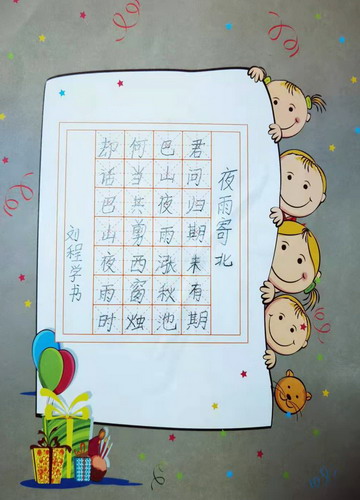 夜雨寄北
君问归期来有期
巴山夜雨涨秋池
何当共剪西窗烛
却话巴山夜雨时
刘程学书